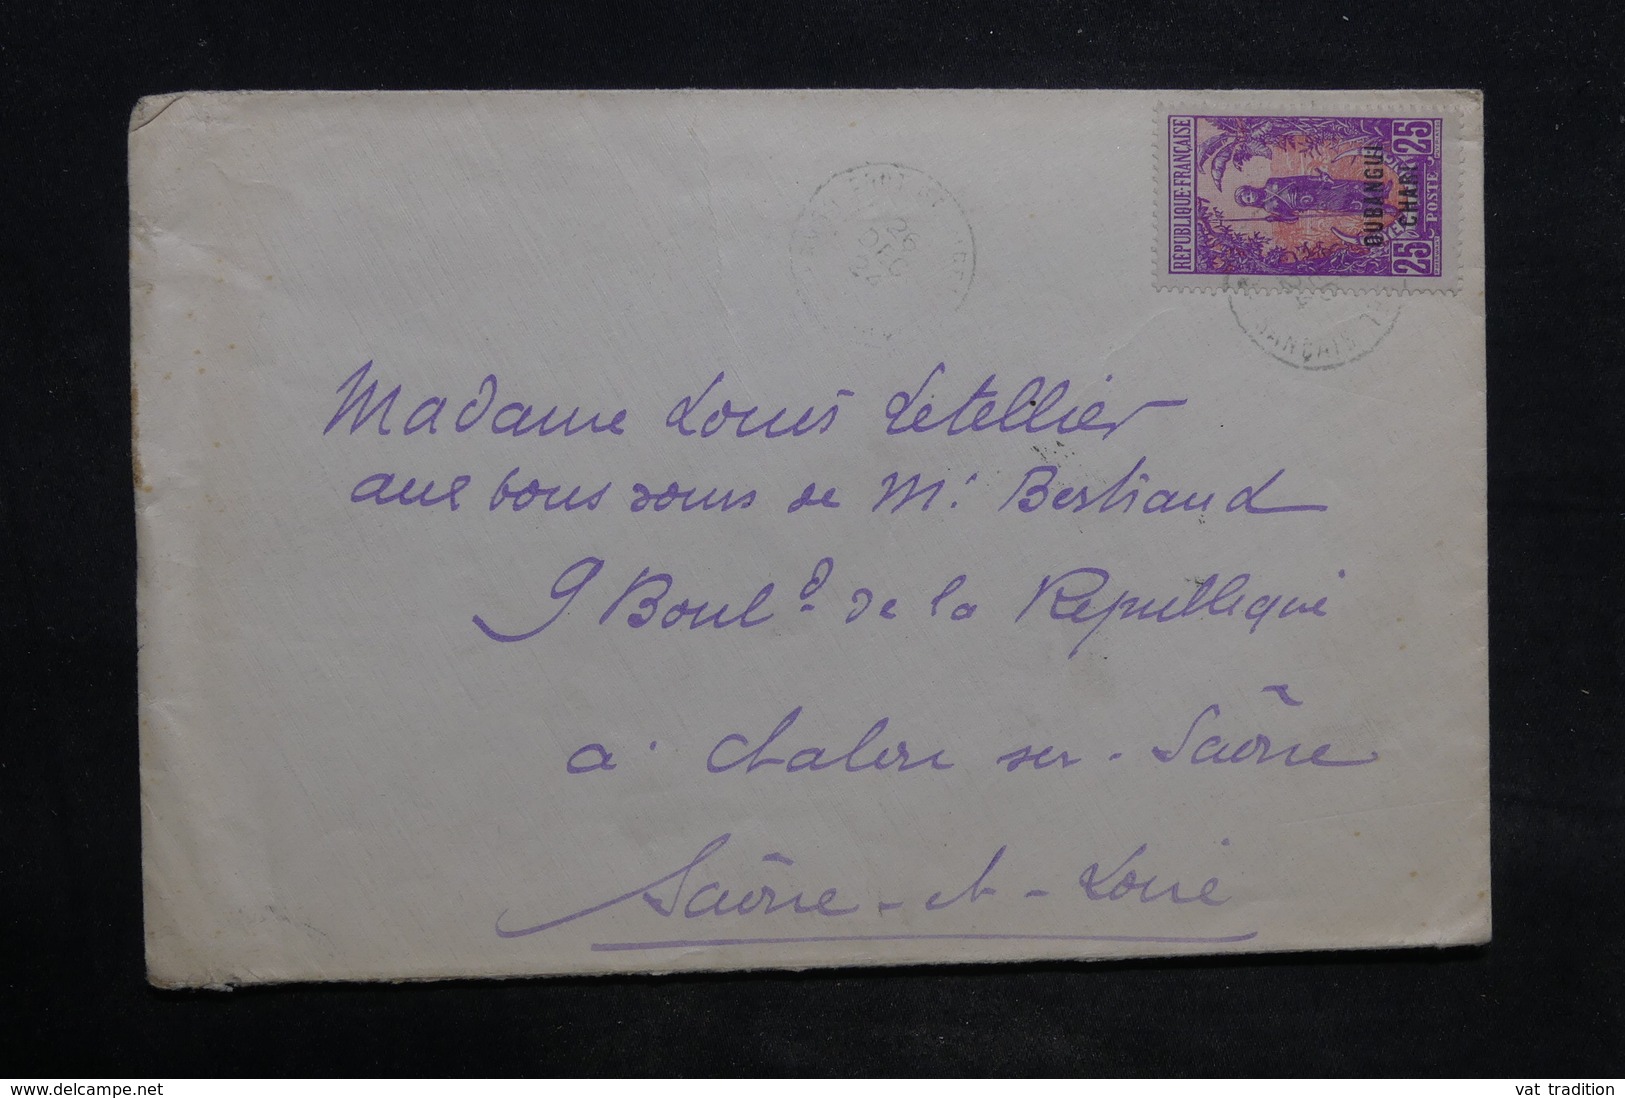 RÉPUBLIQUE-FRANÇAISE
OUBANGUI
CHARI
25 POSTE 25
26
DEC
24
Madame Louis Letellier
aux bons soins de Mr Bertrand
9 Boul.d de la République
à Chalon sur-Saône
Saône-et-Loire
www.delcampe.net
vat_tradition